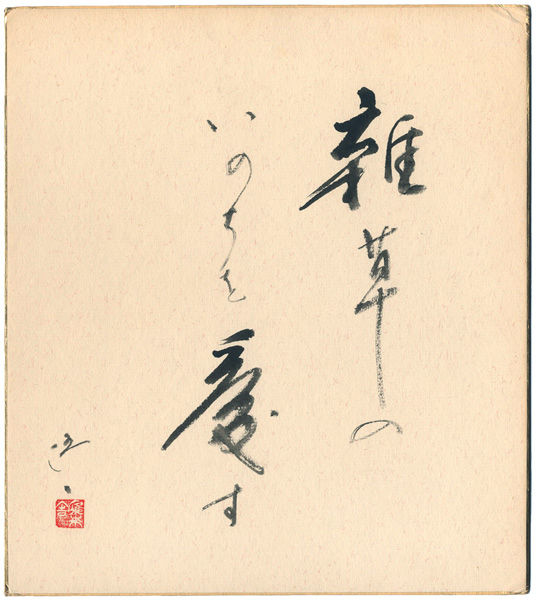 雜草の
いのちを
愛す